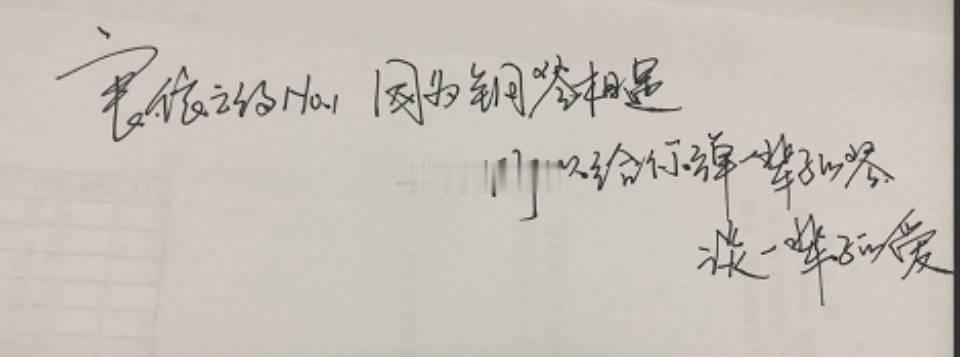 依云的No.1 因为钢琴相遇
可以给你弹一辈子的琴
谈一辈子的爱